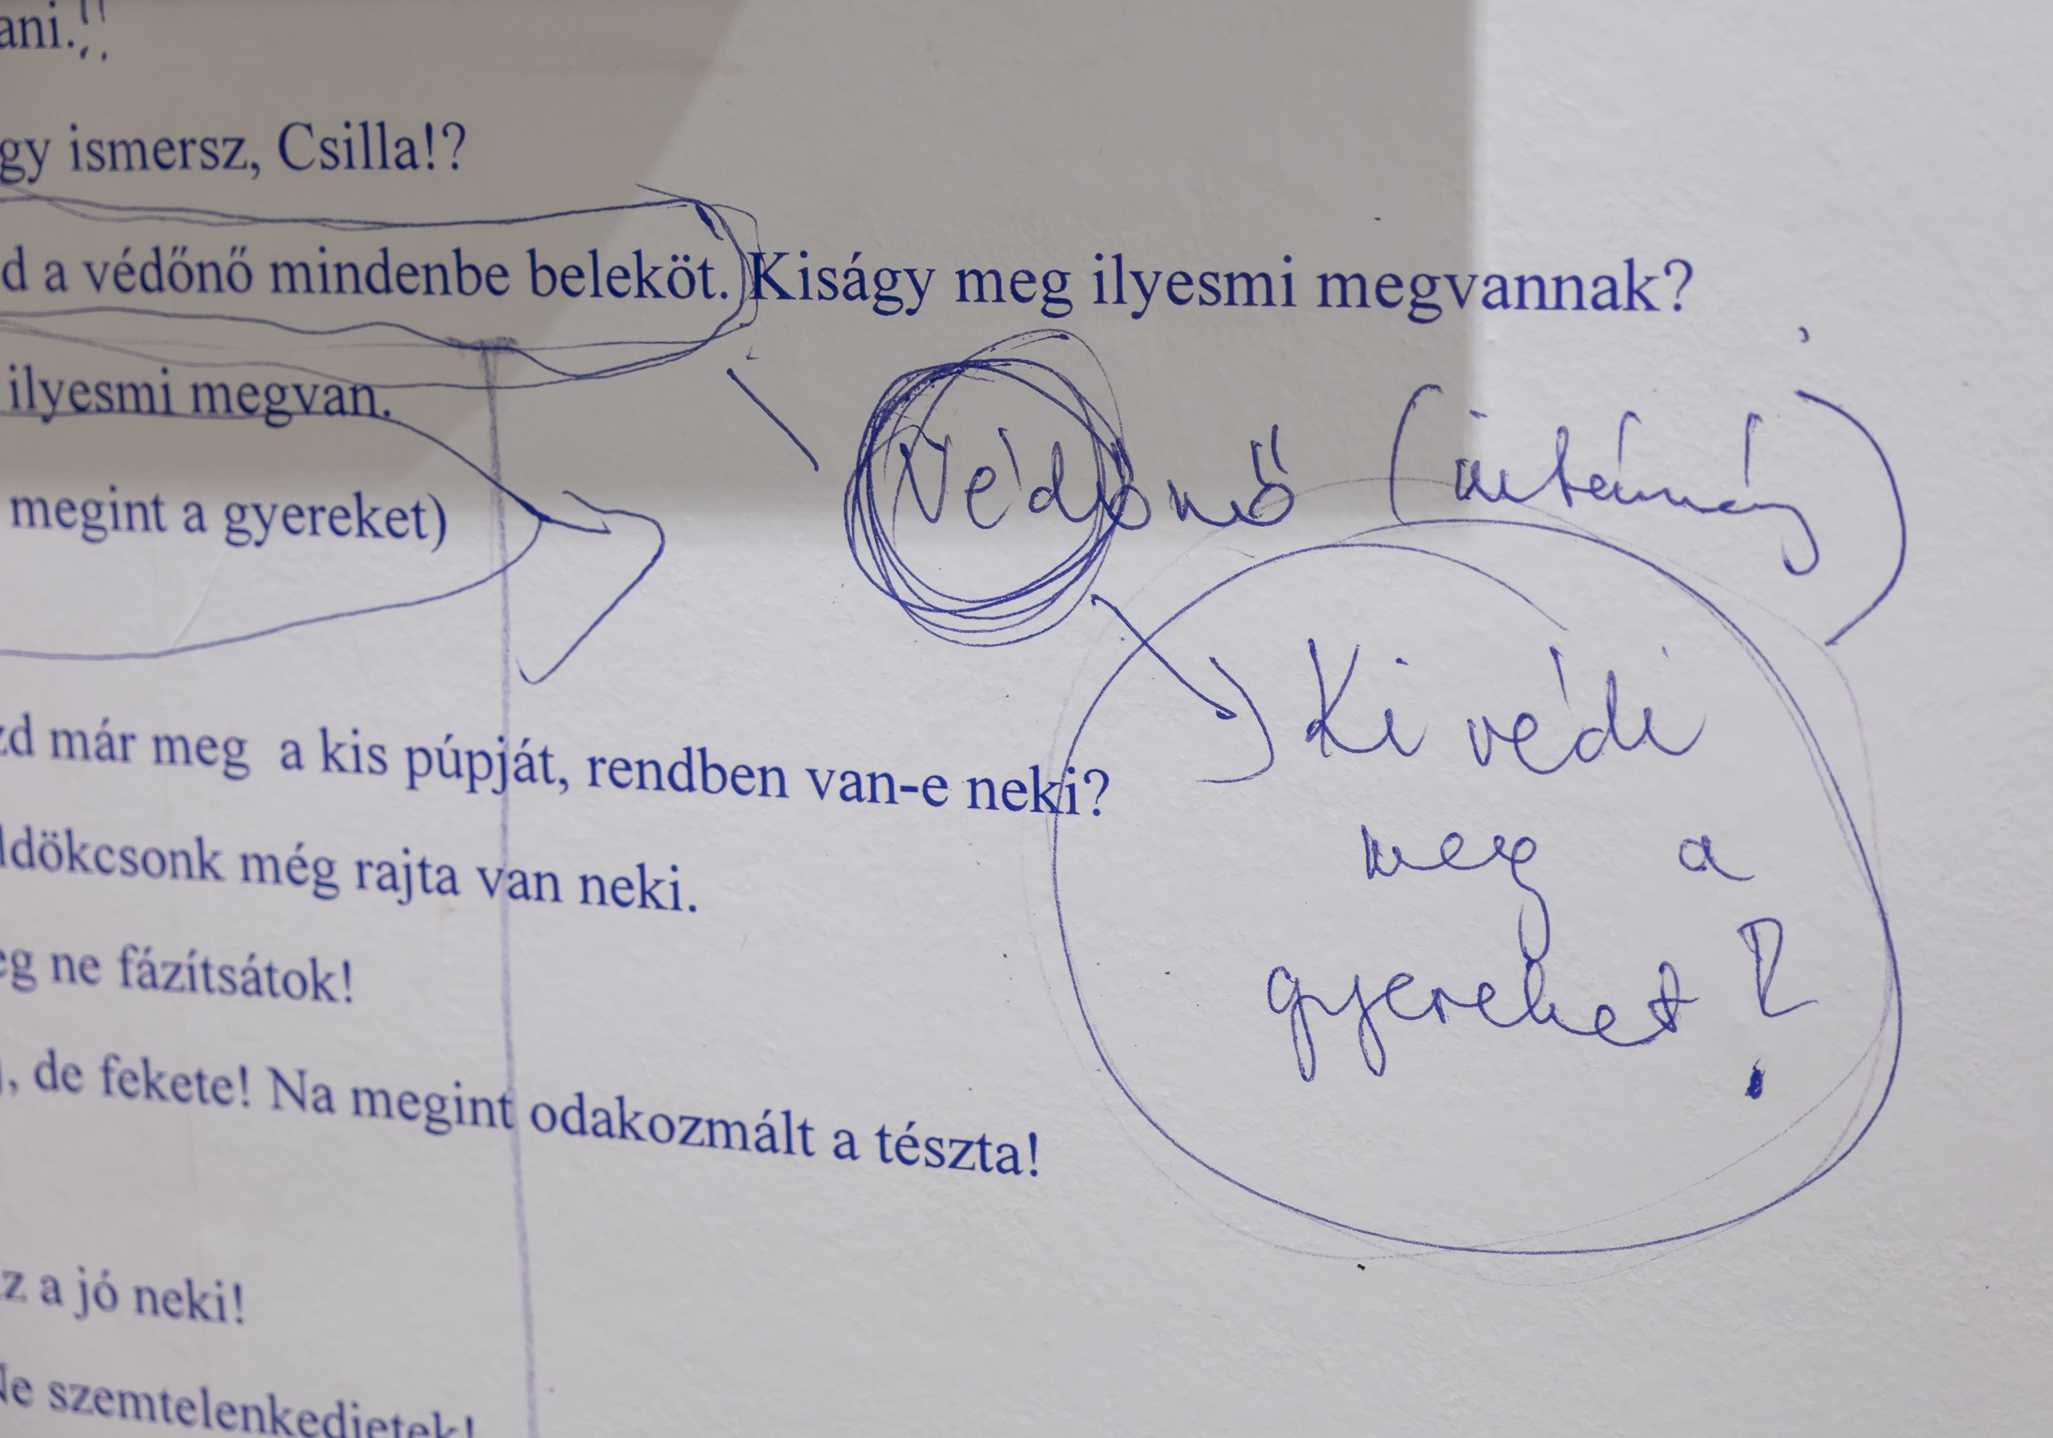 ani.!!
gy ismersz, Csilla!?
d a védőnő mindenbe beleköt. Kiságy meg ilyesmi megvannak?
ilyesmi megvan.
Védőnő
megint a gyereket)
Ki védi
meg a
gyereket?
zd már meg a kis púpját, rendben van-e neki?
ldökcsonk még rajta van neki.
eg ne fázítsátok!
, de fekete! Na megint odakozmált a tészta!
z a jó neki!
Ne szemtelenkedjetek!